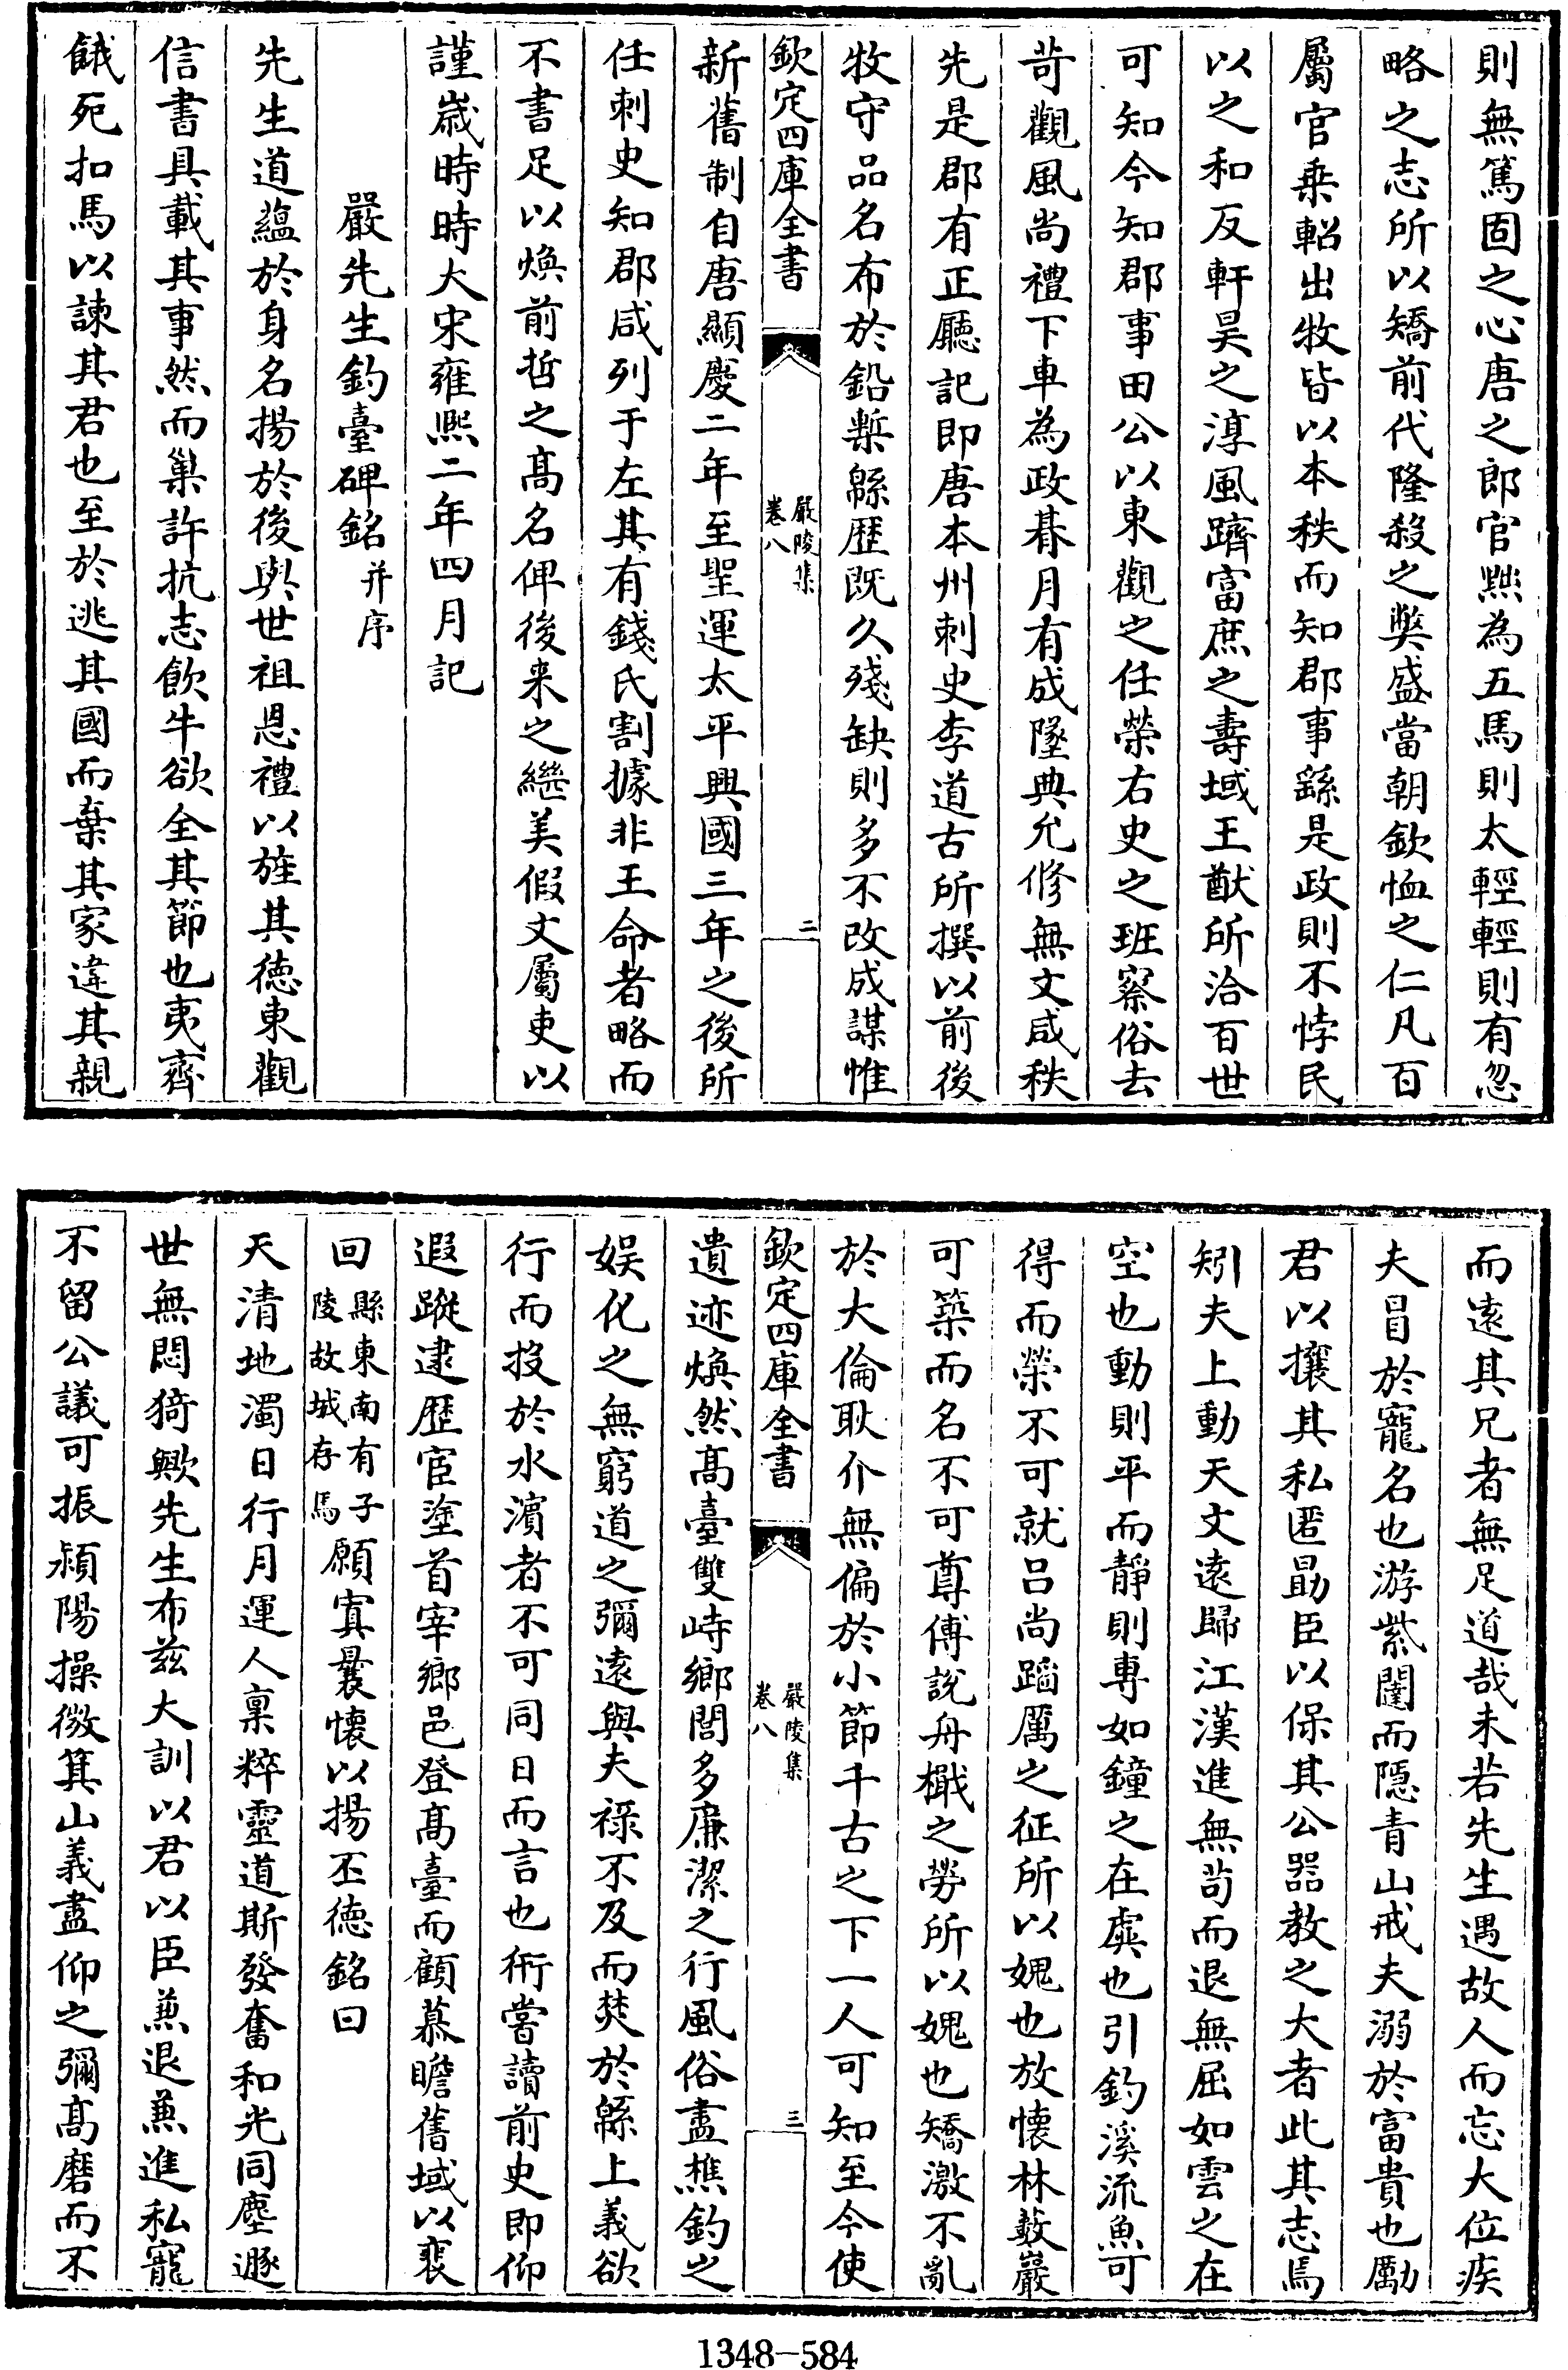 則無篤固之心唐之郎官㸃為五馬則太輕輕則有忽
略之志所以矯前代隆殺之獘盛當朝欽恤之仁凡百
屬官乗軺出牧皆以本秩而知郡事繇是政則不悖民
以之和反軒昊之淳風躋富庶之壽域王猷所洽百世
可知今知郡事田公以東觀之任榮右史之班察俗去
苛觀風尚禮下車為政朞月有成墜典允修無文咸秩
先是郡有正廳記即唐本州刺史李道古所撰以前後
牧守品名布於鉛槧緜歴既久殘缺則多不改成謀惟
欽定四庫全書
嚴陵集
卷八
二
新舊制自唐顯慶二年至聖運太平興國三年之後所
任刺史知郡咸列于左其有錢氏割據非王命者略而
不書足以煥前哲之髙名俾後来之繼美假文屬吏以
謹歳時時大宋雍熈二年四月記
嚴先生釣臺碑銘并序
先生道蘊於身名揚於後與世祖恩禮以旌其徳東觀
信書具載其事然而巢許抗志飲牛欲全其節也夷齊
餓死扣馬以諫其君也至於逃其國而棄其家違其親
而逺其兄者無足道哉未若先生遇故人而忘大位疾
夫冒於寵名也游紫闥而隠青山戒夫溺於富貴也勵
君以攘其私匿勗臣以保其公器教之大者此其志焉
矧夫上動天文逺歸江漢進無茍而退無屈如雲之在
空也動則平而靜則専如鐘之在虡也引釣溪流魚可
得而榮不可就吕尚蹈厲之征所以媿也放懐林薮巖
可築而名不可尊傅說舟檝之勞所以媿也矯激不亂
於大倫耿介無偏於小節千古之下一人可知至今使
欽定四庫全書
嚴陵集
卷八
三
遺迹煥然髙臺雙峙鄉閭多亷潔之行風俗盡樵釣之
娱化之無窮道之彌逺與夫禄不及而焚於緜上義欲
行而投於水濵者不可同日而言也術嘗讀前史即仰
遐蹤逮歴宦塗首宰鄉邑登髙臺而顧慕瞻舊域以裵
回縣東南有子陵故城存焉願寘曩懐以揚丕徳銘曰
天清地濁日行月運人稟粹靈道斯發奮和光同塵遯
世無悶猗歟先生布兹大訓以君以臣兼退兼進私寵
不留公議可振潁陽操微箕山義盡仰之彌髙磨而不
1348-584